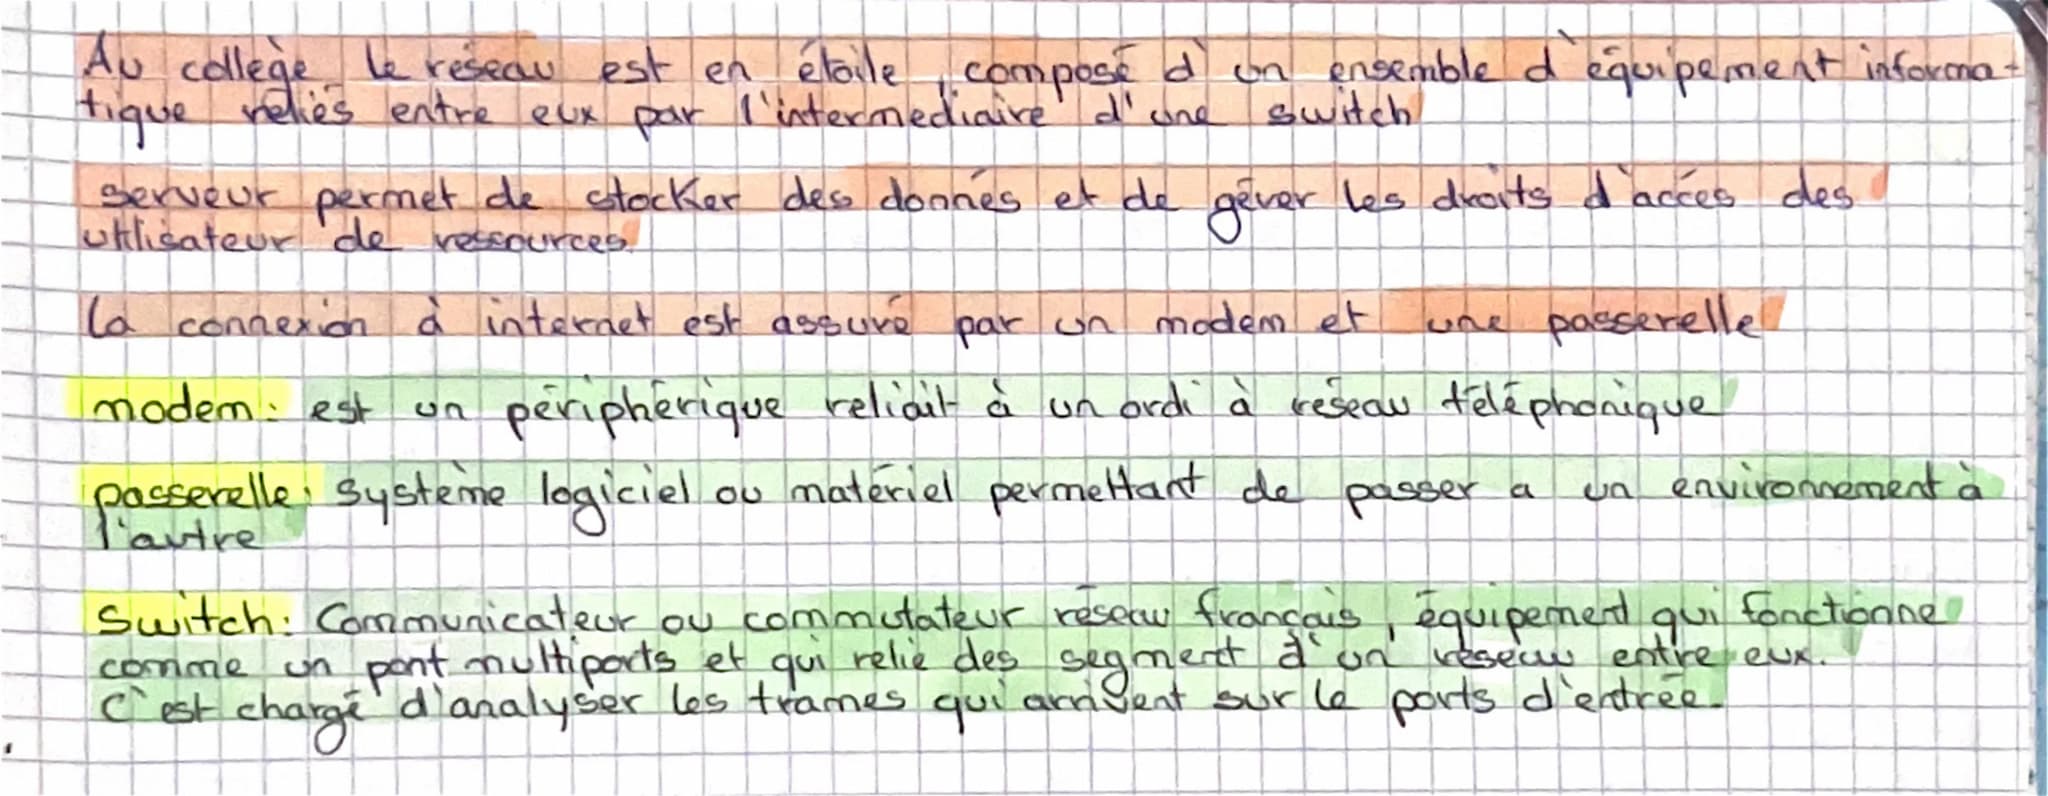 Au collège le réseau est en étoile, composé d'un ensemble d'équipement informa-
tique reliés entre eux par l'intermediaire d'une switch
serveur permet de stocker des donnés et de gérer les droits d'accés des
utilisateur de ressources
la connexion à internet est assuré par un modem et une passerelle
modem: est un périphérique reliait à un ordi à réseau téléphonique
passerelle: système logiciel ou matériel permettant de passer a un environnement à
l'autre
switch: Communicateur ou commutateur réseau français, équipement qui fonctionne
comme un pont multiports et qui relie des segment d'un réseau entre eux.
C'est chargé d'analyser les trames qui arrivent sur le ports d'entrée.